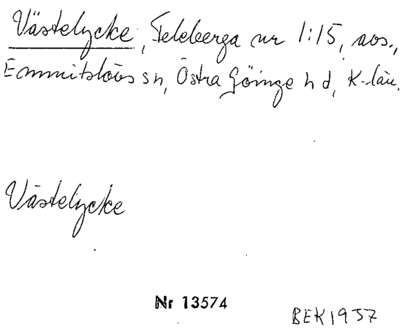 Västelycke, Feleberga nr 1:15, avs.,
Emmitslövs sn, Östra Göinge hd, K-län.
Västelycke
Nr 13574
BEK 1957